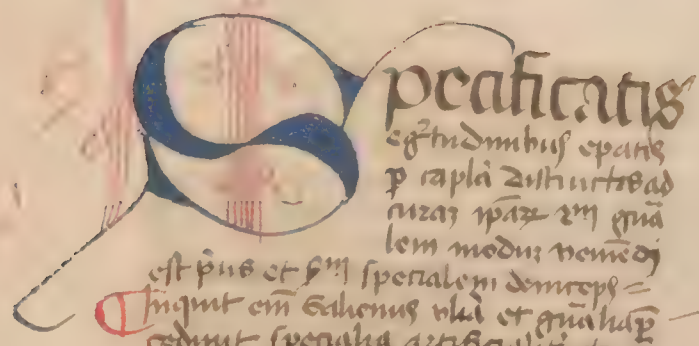 Specificatis
egritudinibus epatis
p capla distinctis ad
curaz ipaꝝ ẜm gnã
lem moduz veniẽdũ
est prius et ẜm specialem deinceps =
¶ Inquit eim Galienus vlia et gnãlia p
cedunt specialia